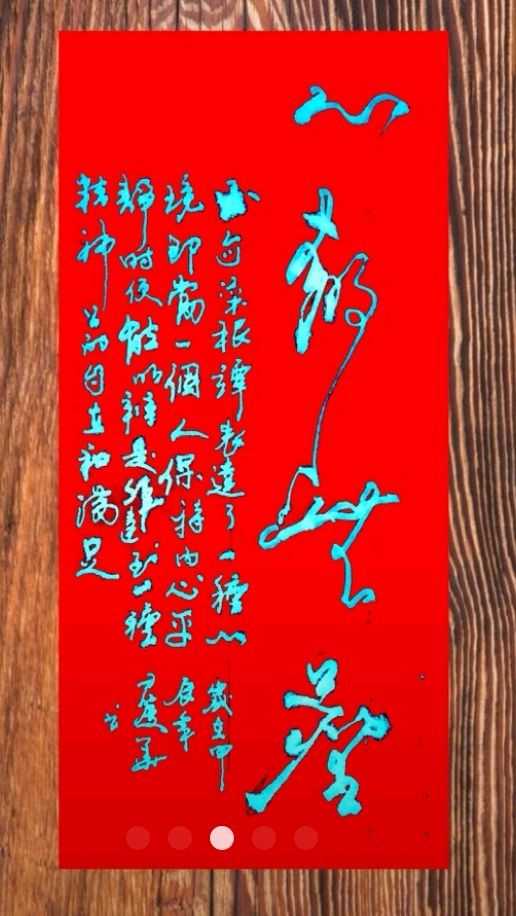 心
出自菜根譚表達了一種心
境即當一個人保持内心平
静時便能明辨是非達到一種
精神上的自在和滿足
歲在甲
辰年